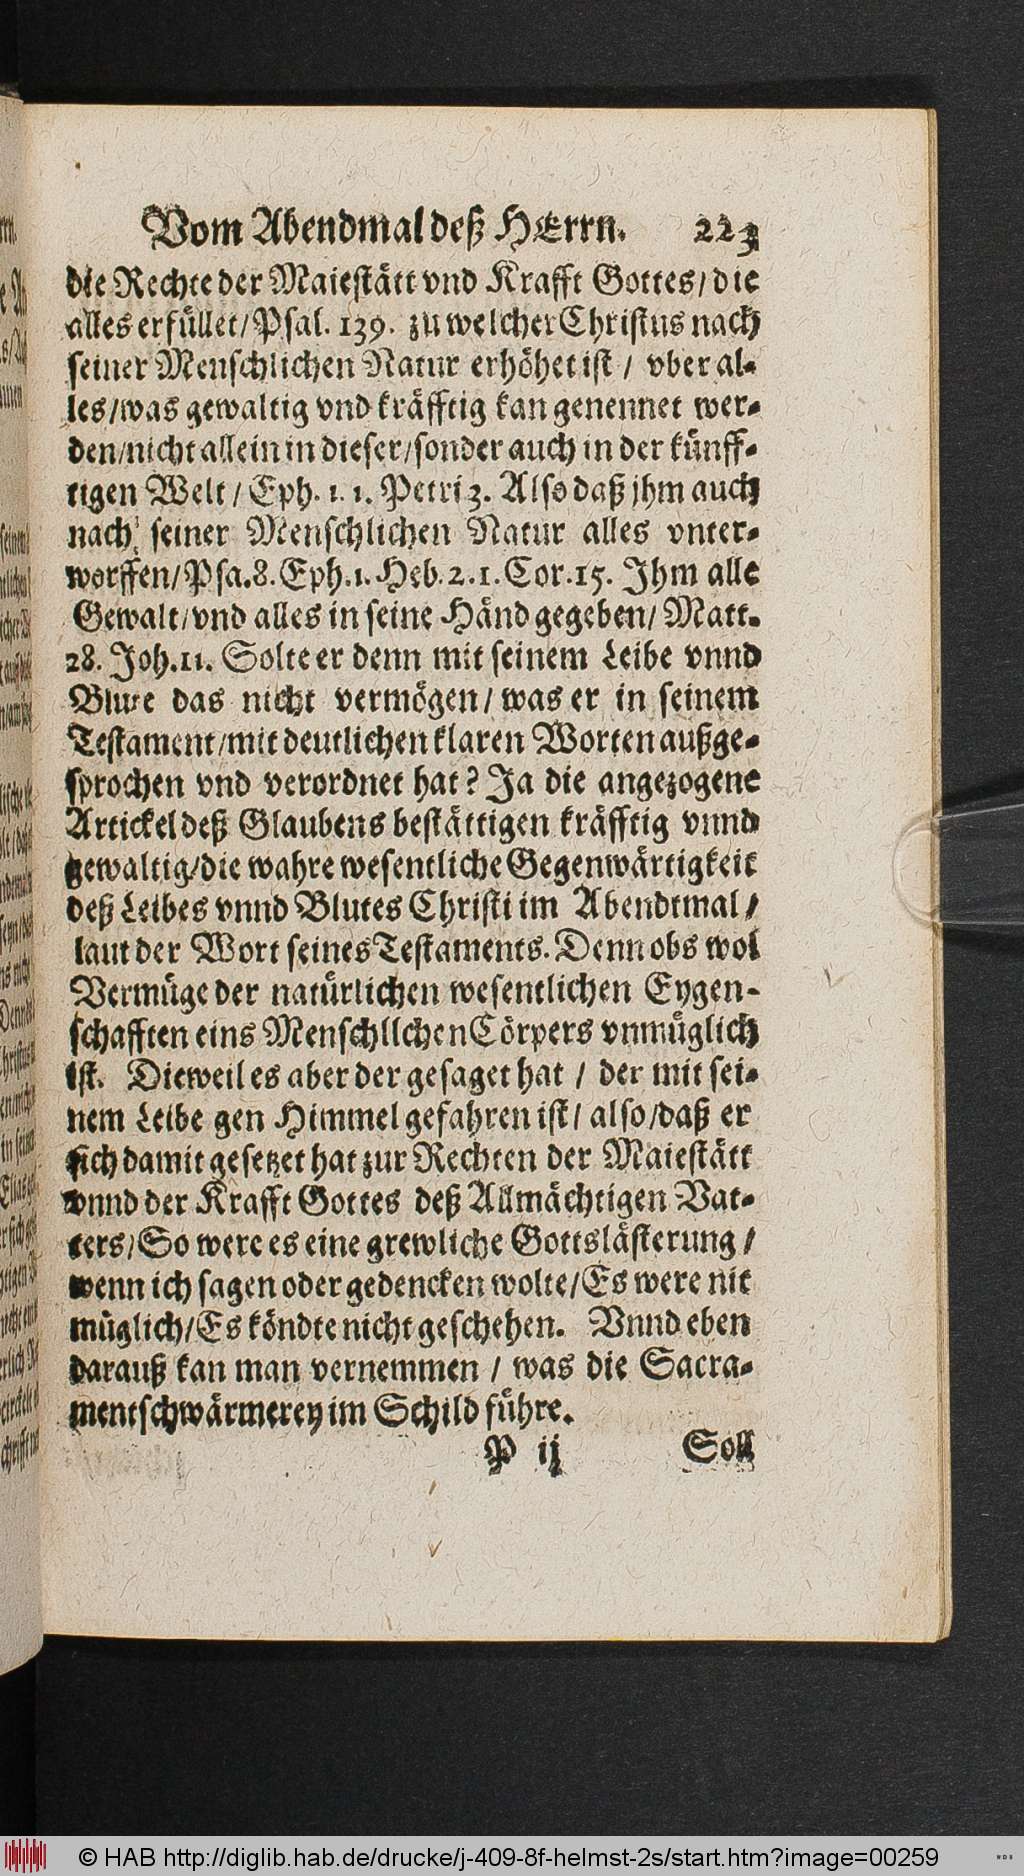 Vom Abendmal deß HErrn. 223
die Rechte der Maiestätt vnd Krafft Gottes/ die
alles erfüllet/ Psal. 139. zu welcher Christus nach
seiner Menschlichen Natur erhöhet ist / vber al-
les/ was gewaltig vnd kräfftig kan genennet wer-
den/ nicht allein in dieser/ sonder auch in der künff-
tigen Welt / Eph. 1. 1. Petri 3. Also daß jhm auch
nach seiner Menschlichen Natur alles vnter-
worffen/ Psa. 8. Eph. 1. Heb. 2. 1. Cor. 15. Ihm alle
Gewalt/ vnd alles in seine Händ gegeben/ Matt.
28. Joh. 11. Solte er denn mit seinem Leibe vnnd
Blute das nicht vermögen / was er in seinem
Testament/ mit deutlichen klaren Worten außge-
sprochen vnd verordnet hat? Ja die angezogene
Artickel deß Glaubens bestättigen kräfftig vnnd
gewaltig/ die wahre wesentliche Gegenwärtigkeit
deß Leibes vnnd Blutes Christi im Abendtmal /
laut der Wort seines Testaments. Denn obs wol
Vermüge der natürlichen wesentlichen Eygen-
schafften eins Menschllchen Cörpers vnmüglich
ist. Dieweil es aber der gesaget hat / der mit sei-
nem Leibe gen Himmel gefahren ist / also/ daß er
sich damit gesetzet hat zur Rechten der Maiestätt
vnnd der Krafft Gottes deß Allmächtigen Vat-
ters/ So were es eine grewliche Gottslästerung /
wenn ich sagen oder gedencken wolte/ Es were nit
müglich/ Es köndte nicht geschehen. Vnnd eben
darauß kan man vernemmen / was die Sacra-
mentschwärmerey im Schild führe.
P ij Soll
© HAB http://diglib.hab.de/drucke/j-409-8f-helmst-2s/start.htm?image=00259